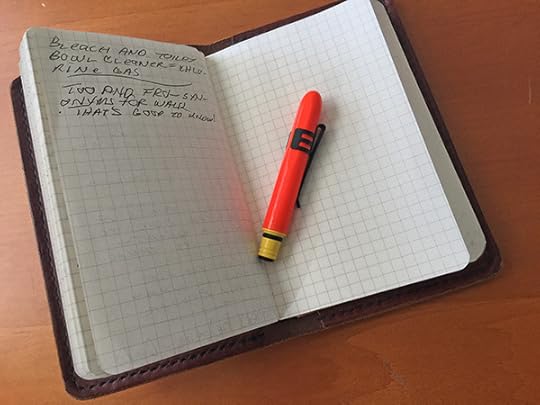 BLEACH AND TOILET
BOWL CLEANER = CHLO-
RINE GAS
TOO AND FRO - SYN-
ONYMS FOR WALK
. THAT'S GOOD TO KNOW!
E